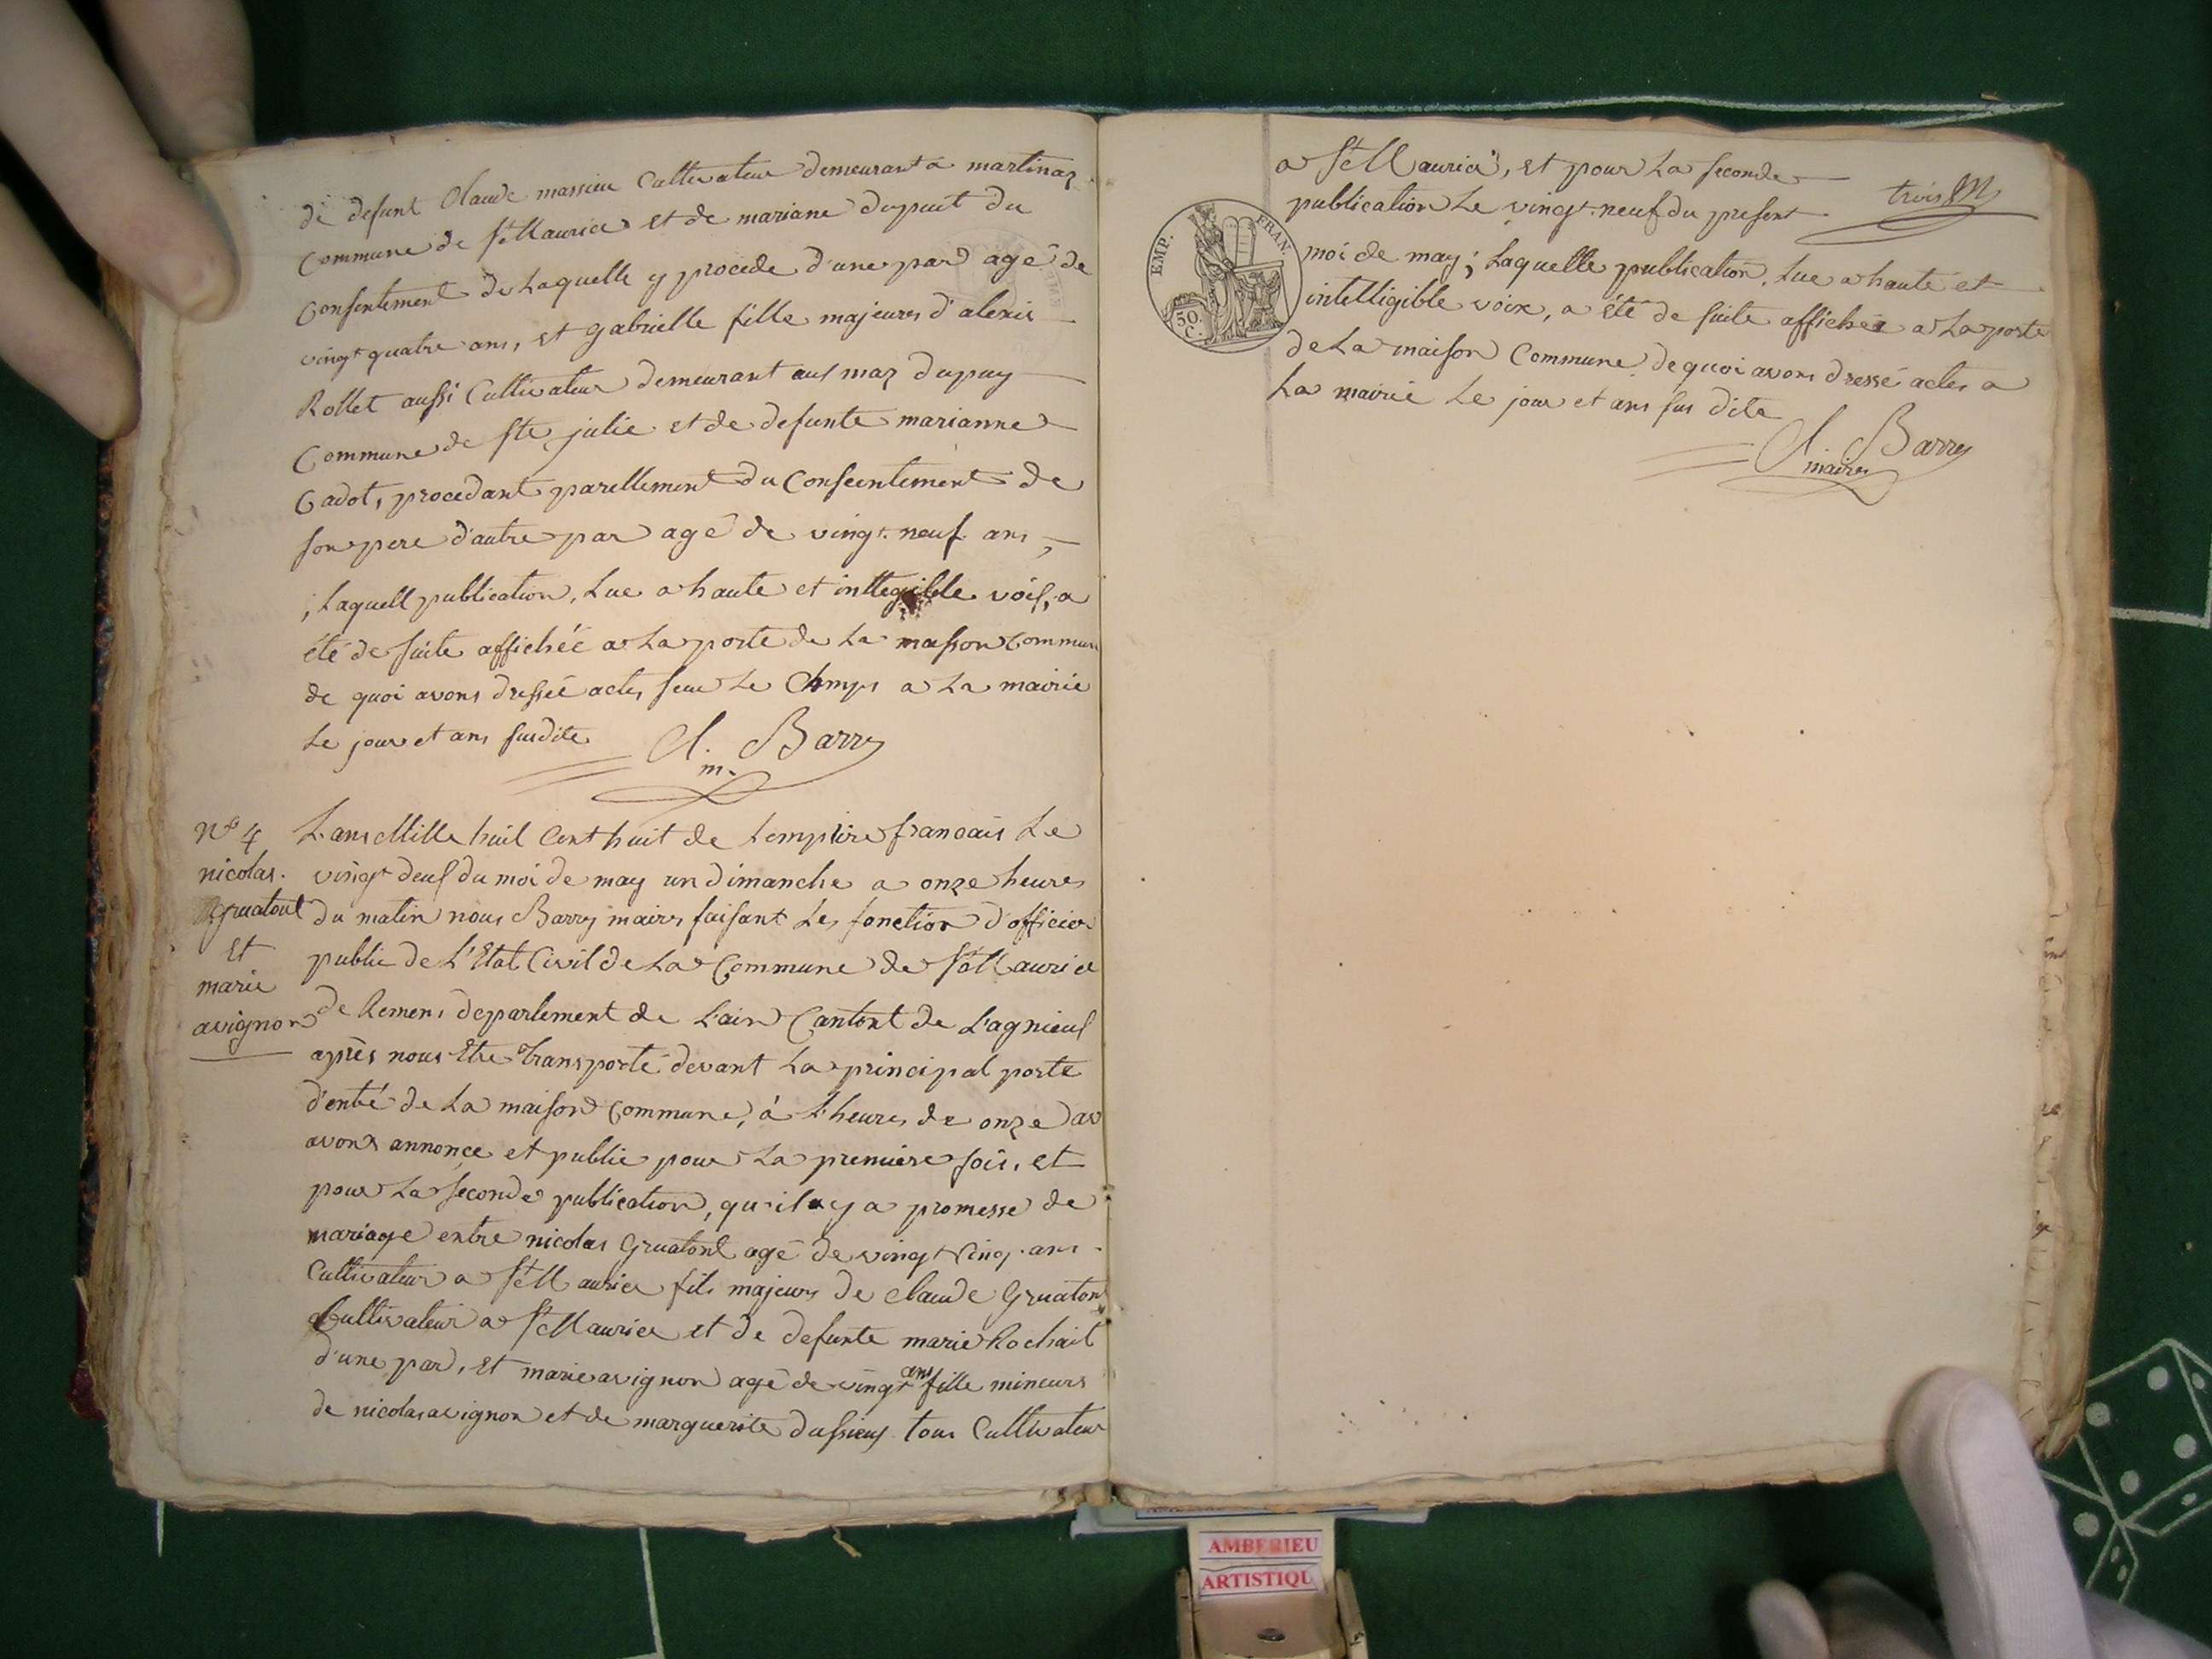 de defunt Claude massieu Cultivateur demeurant a martinaz
Commune de St Maurice et de mariane dupuit du
Consentement de Laquelle y procede d'une par agé de
vingt quatre ans, et gabrielle fille majeures d'alexis
Rollet aussi Cultivateur demeurant aus maz dupuy
Commune de Ste julie et de defunte marianne
Cadot, procedant parellement du Consentement de
son pere d'autre par agé de vingt-neuf ans,
; Laquell publication, Lue a haute et intteligible vois, a
été de suite affichée a La porte de La maison Commun
de quoi avons dressée actes seur Le Champs a La mairie
Le jour et ans susdite
Cl. Barry
m.
N° 4
nicolas
gruatont
Et
marie
avignon
L'ans Mille huit Cent huit de Lempire francais Le
vingt deus du moi de may un dimanche a onze heures
du matin nous Barry maire faisant Les fonction d'officier
public de L'Etat Civil de La Commune de St Maurice
de Remens departement de L'ain Cantont de L'agnieus
après nous Etre Transporté devant La principal porte
d'entré de La maison Commune, á L'heures de onze av
avons annonce et publie pour La premiere fois, et
pour La seconde publication, qu'il y a promesse de
mariage entre nicolas gruatont agé de vingt Cinq ans
Cultivateur a St Maurice fils majeurs de claude gruaton
Cultivateur a St Maurice et de defunte marie Rochait
d'une par, Et marie avignon agé de vingt ans fille mineurs
de nicolas avignon et de marguerite dussieus tous Cultivateur
a St Maurice, et pour La seconde
publication Le vingt-neuf du present
trois
moi de may; Laquelle publication, Lue a haute et
intelligible voix, a été de suite affichée a La porte
de La maison Commune de quoi avons dressé actes a
La mairie Le jour et ans sus dite
Cl. Barry
maire
EMP. FRAN.
50.
C.
AMBERIEU
ARTISTIQU